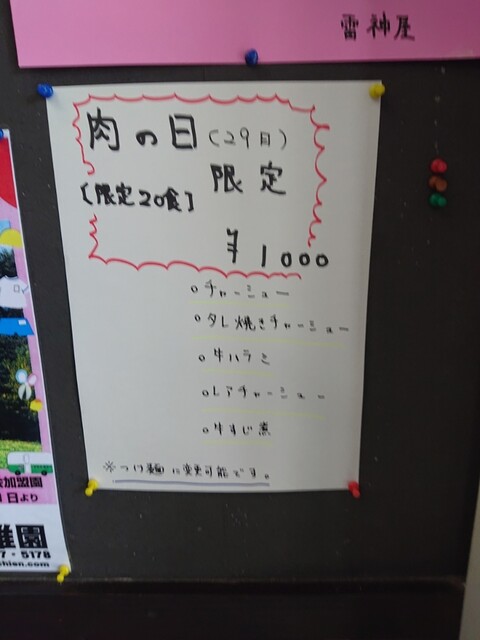 雷神屋
肉の日(29日)
限定
[限定20食]
¥1000
○チャーシュー
○タレ焼きチャーシュー
○牛ハラミ
○レアチャーシュー
○牛すじ煮
※つけ麺に変更可能です。
加盟園
日より
稚園
7・5178
hien.com